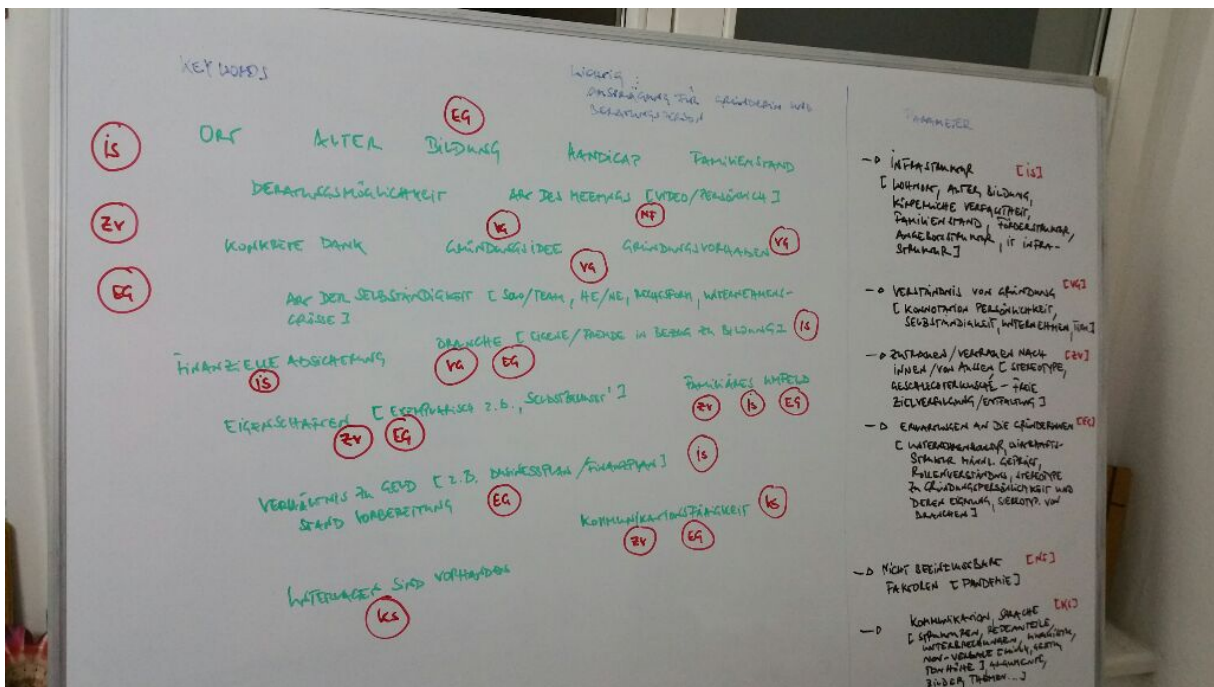 KEY WORDS
WICHTIG :
AUSPRÄGUNG FÜR GRÜNDERIN UND
BERATUNGSPERSON
is
EG
ORT ALTER BILDUNG HANDICAP FAMILIENSTAND
BERATUNGSMÖGLICHKEIT ART DES MEETINGS [VIDEO/PERSÖNLICH]
ZV
VG
NF
KONKRETE BANK GRÜNDUNGSIDEE GRÜNDUNGSVORHABEN VG
VG
EG
ART DER SELBSTÄNDIGKEIT [SOLO/TEAM, HE/NE, RECHTSFORM, UNTERNEHMENS-
GRÖSSE]
BRANCHE [EIGENE/FREMDE IN BEZUG ZU BILDUNG] is
FINANZIELLE ABSICHERUNG VG EG
is
EIGENSCHAFTEN [EXEMPLARISCH z.b. ,SELBSTBEWUSST']
ZV EG
FAMILIÄRES UMFELD
ZV is EG
VERHÄLTNIS ZU GELD [z.B. BUSINESSPLAN/FINANZPLAN] is
STAND VORBEREITUNG EG
KOMMUNIKATIONSFÄHIGKEIT KS
ZV EG
UNTERLAGEN SIND VORHANDEN
KS
PARAMETER
→ INFRASTRUKTUR [is]
[WOHNORT, ALTER, BILDUNG,
KÖRPERLICHE VERFASSTHEIT,
FAMILIENSTAND, FÖRDERSTRUKTUR,
ANGEBOTSSTRUKTUR, IT INFRA-
STRUKTUR]
→ VERSTÄNDNIS VON GRÜNDUNG [VG]
[KONNOTATION PERSÖNLICHKEIT,
SELBSTÄNDIGKEIT, UNTERNEHMENTUM]
→ ZUTRAUEN/VERTRAUEN NACH [ZV]
INNEN/VON AUSSEN [STEREOTYPE,
GESCHLECHTERKLISCHE - FREIE
ZIELVERFOLGUNG/ENTFALTUNG]
→ ERWARTUNGEN AN DIE GRÜNDERINNEN [EG]
[UNTERNEHMENSKULTUR,
STRUKTUR MÄNNL. GEPRÄGT,
ROLLENVERSTÄNDNIS, STEREOTYPE
ZU GRÜNDUNGSPERSÖNLICHKEIT UND
DEREN EIGNUNG, STEREOTYP. VON
BRANCHEN]
→ NICHT BEEINFLUSSBARE [NF]
FAKTOREN [PANDEMIE]
→ KOMMUNIKATION, SPRACHE [KS]
[STRUKTUREN, REDEANTEILE,
UNTERBRECHUNGEN,
NON-VERBALE [MIMIK, GESTIK,
TONHÖHE], ARGUMENTE,
BILDER, THEMEN...]